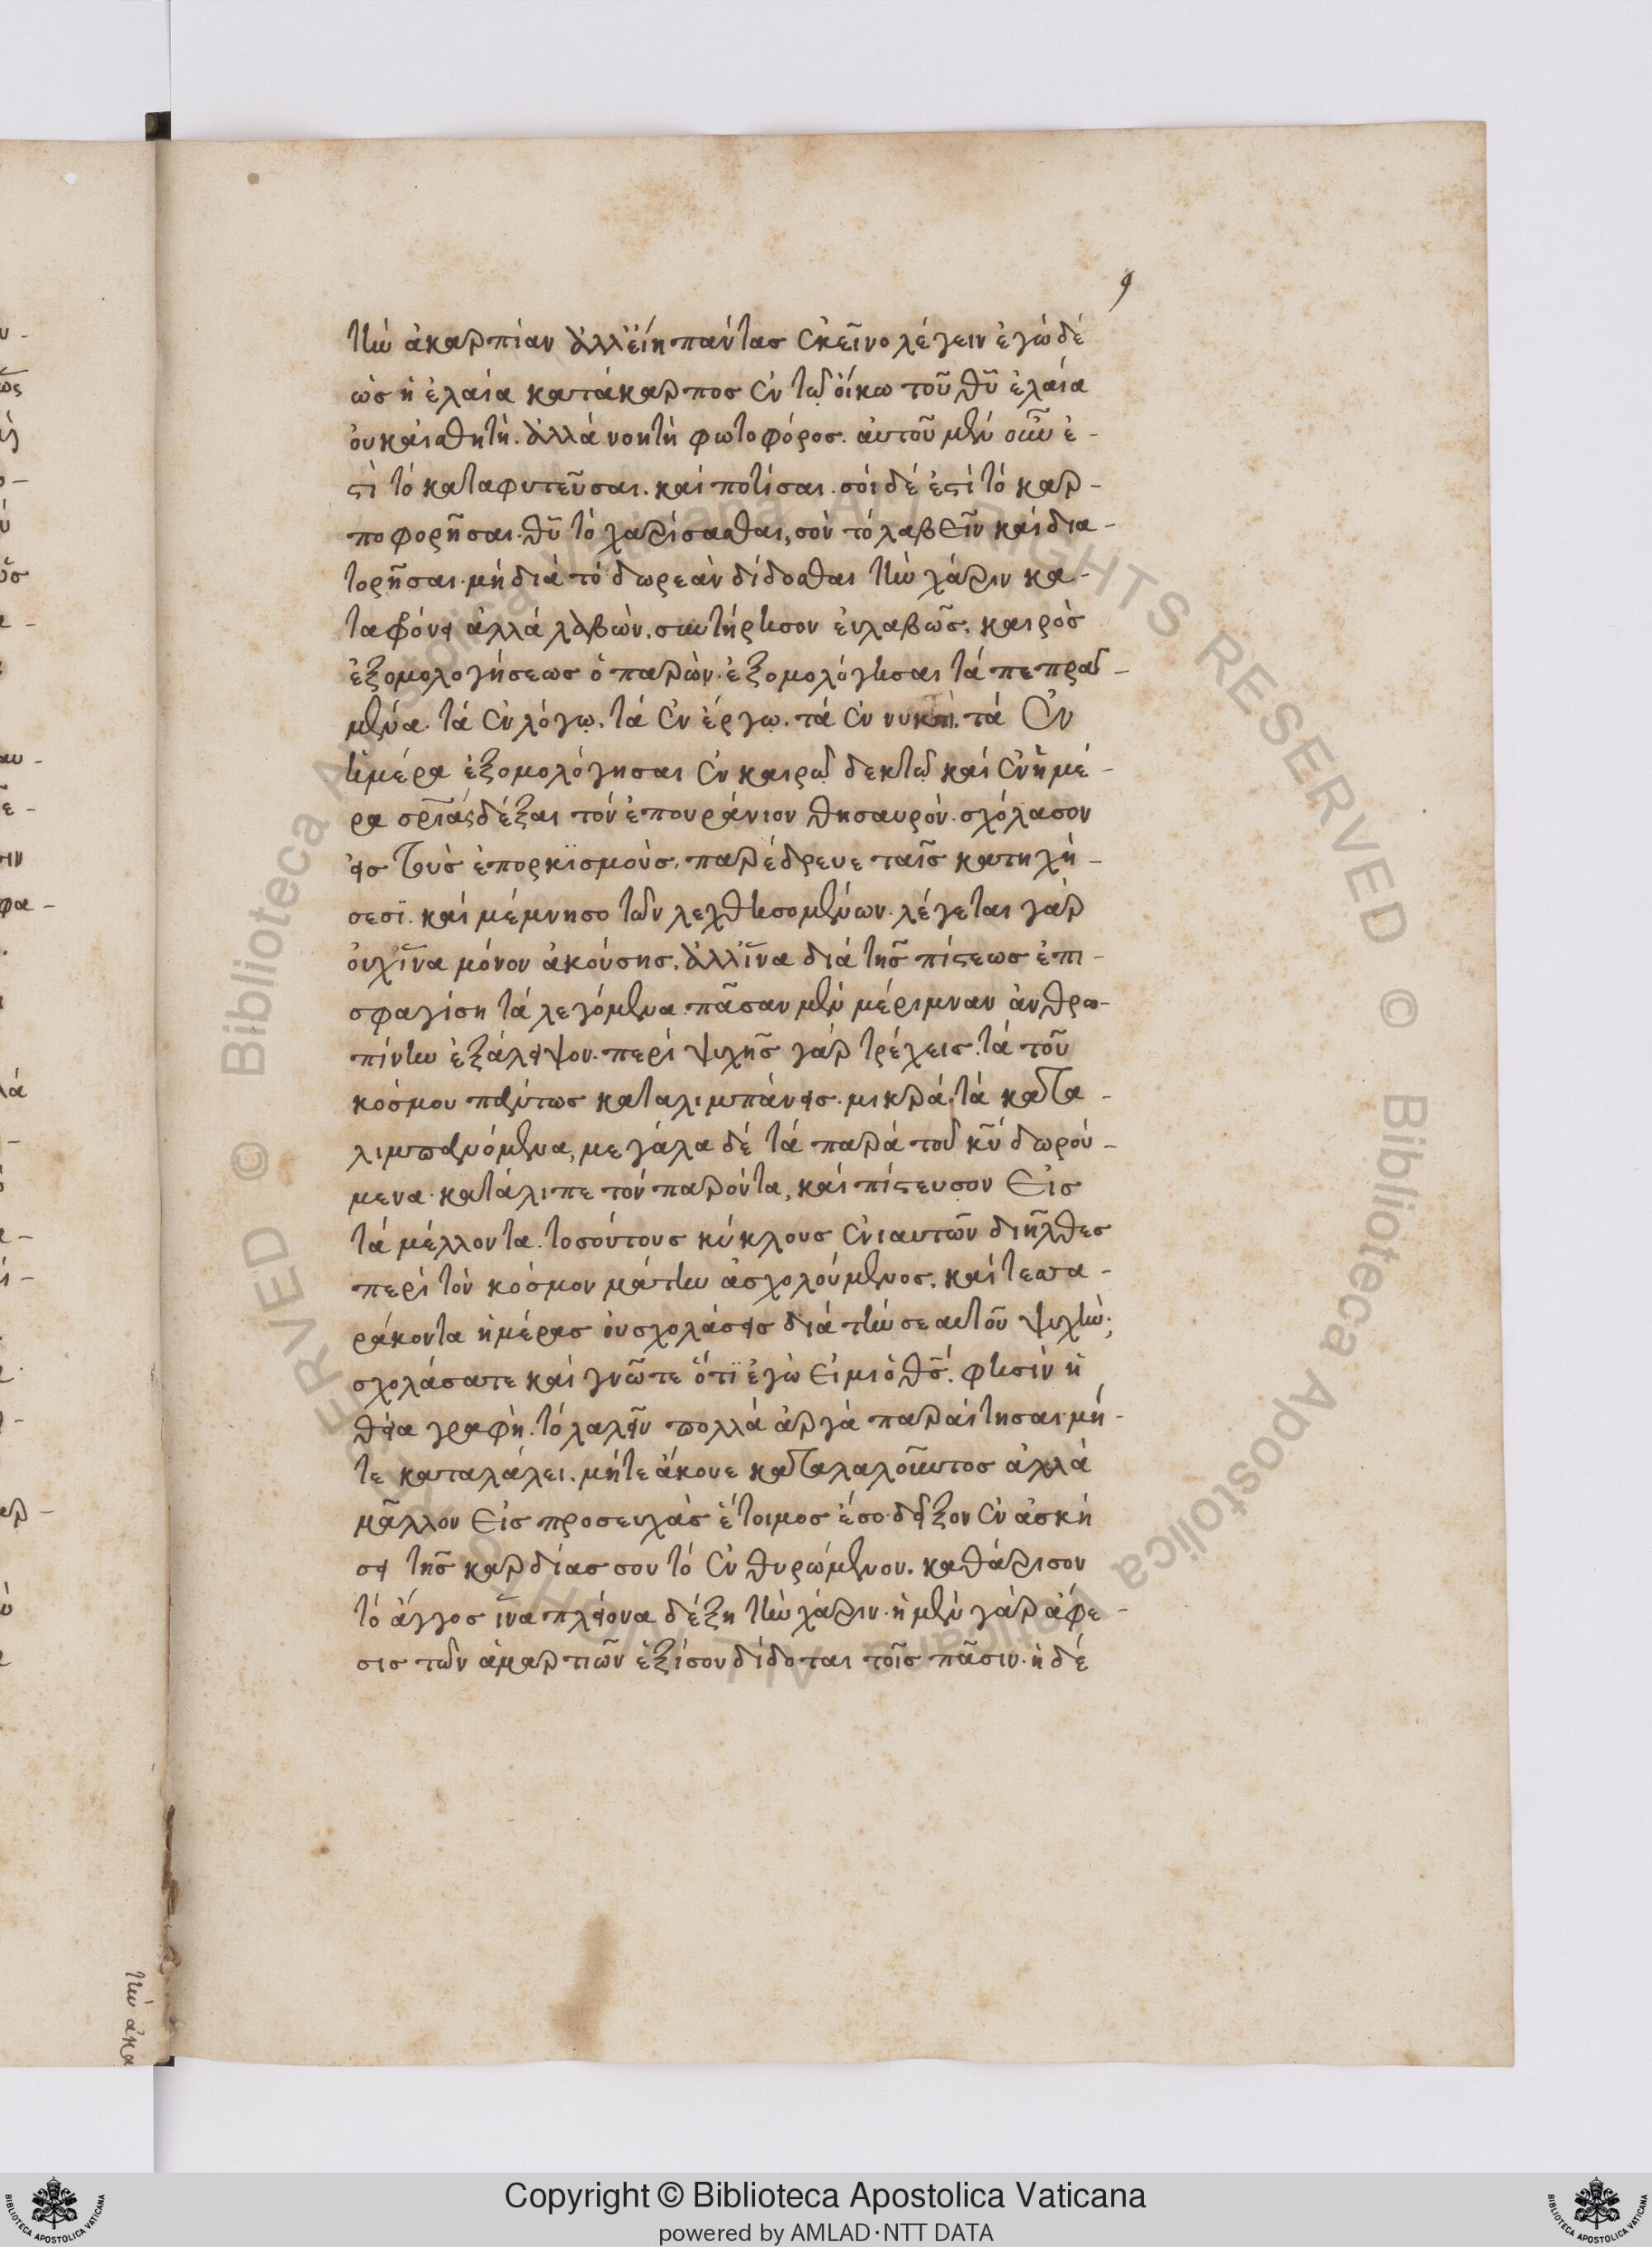 9
τὴν ἀκαρπίαν ἀλλείη πάντας ἐκεῖνο λέγειν ἐγὼ δέ
ὡς ἡ ἐλαία κατάκαρπος ἐν τῷ ὀίκω τοῦ θῦ ἐλαία
ὀυκ ἀισθητὴ. ἀλλά νοητὴ φωτοφόρος. ἀυτοῦ μὲν οὖν ἐ-
στὶ τό καταφυτεῦσαι. καὶ ποτίσαι. σόι δέ ἐστὶ τό καρ-
ποφορῆσαι. θῦ τὸ χαρίσασθαι, σὸν τό λαβεῖν καὶ δια-
τορῆσαι. μὴ διὰ τό δωρεὰν δίδοσθαι τὴν χάριν κα-
ταφρόνει ἀλλά λαβὼν. συντήρησον ἐυλαβῶς. καιρὸς
ἐξομολογήσεως ὁ παρὼν. ἐξομολόγησαι τά πεπραγ-
μένα. τά ἐν λόγῳ. τά ἐν ἔργῳ. τά ἐν νυκτὶ. τά ἐν
ἡμέρα ἐξομολόγησαι ἐν καιρῷ δεκτῷ καί ἐν ἡμέ-
ρα σρίας δέξαι τόν ἐπουράνιον θησαυρόν. σχόλασον
εἰς τοὺς ἐπορκϊσμοὺς. παρέδρευε ταῖς κατηχή-
σεσϊ. καί μέμνησο τῶν λεχθησομένων. λέγεται γάρ
ὀυχ ἵνα μόνον ἀκούσης. ἀλλ ἵνα διά τῆς πίστεως ἐπι-
σφαγίση τά λεγόμενα. πᾶσαν μὲν μέριμναν ἀνθρω-
πίνην ἐξάλειψον. περί ψυχῆς γάρ τρέχεις. τά τοῦ
κόσμου πάντως καταλιμπάνεις. μικρά τά κατα-
λιμπανόμενα, μεγάλα δέ τά παρά τοῦ κῦ δωρού-
μενα. κατάλιπε τόν παρόντα, καί πίστευσον εἰς
τά μέλλοντα. τοσούτους κύκλους ἐνιαυτῶν διῆλθες
περί τὸν κόσμον μάτην ἀσχολούμενος. καί τεσσα-
ράκοντα ἡμέρας ὀυ σχολάσεις διά τὴν σεαυτοῦ ψυχὴν;
σχολάσατε καί γνῶτε ὅτϊ ἐγὼ εἰμι ὁ θς. φησὶν ἡ
θεία γραφὴ. τό λαλεῖν πολλά ἀργά παράιτησαι. μή-
τε καταλάλει. μήτε ἄκουε καταλαλοῦντος ἀλλὰ
μᾶλλον εἰς προσευχὰς ἕτοιμος ἔσο. δεῖξον ἐν ἀσκή
σει τῆς καρδίας σου τό ἐνθυρώμενον. καθάρισον
τό ἄγγος ἵνα πλείονα δέξη τὴν χάριν. ἡ μὲν γάρ ἄφε-
σις τῶν ἁμαρτιῶν ἐξίσου δίδοται τοῖς πᾶσιν. ἡ δέ
τὴν ἀκα
Copyright © Biblioteca Apostolica Vaticana
powered by AMLAD·NTT DATA